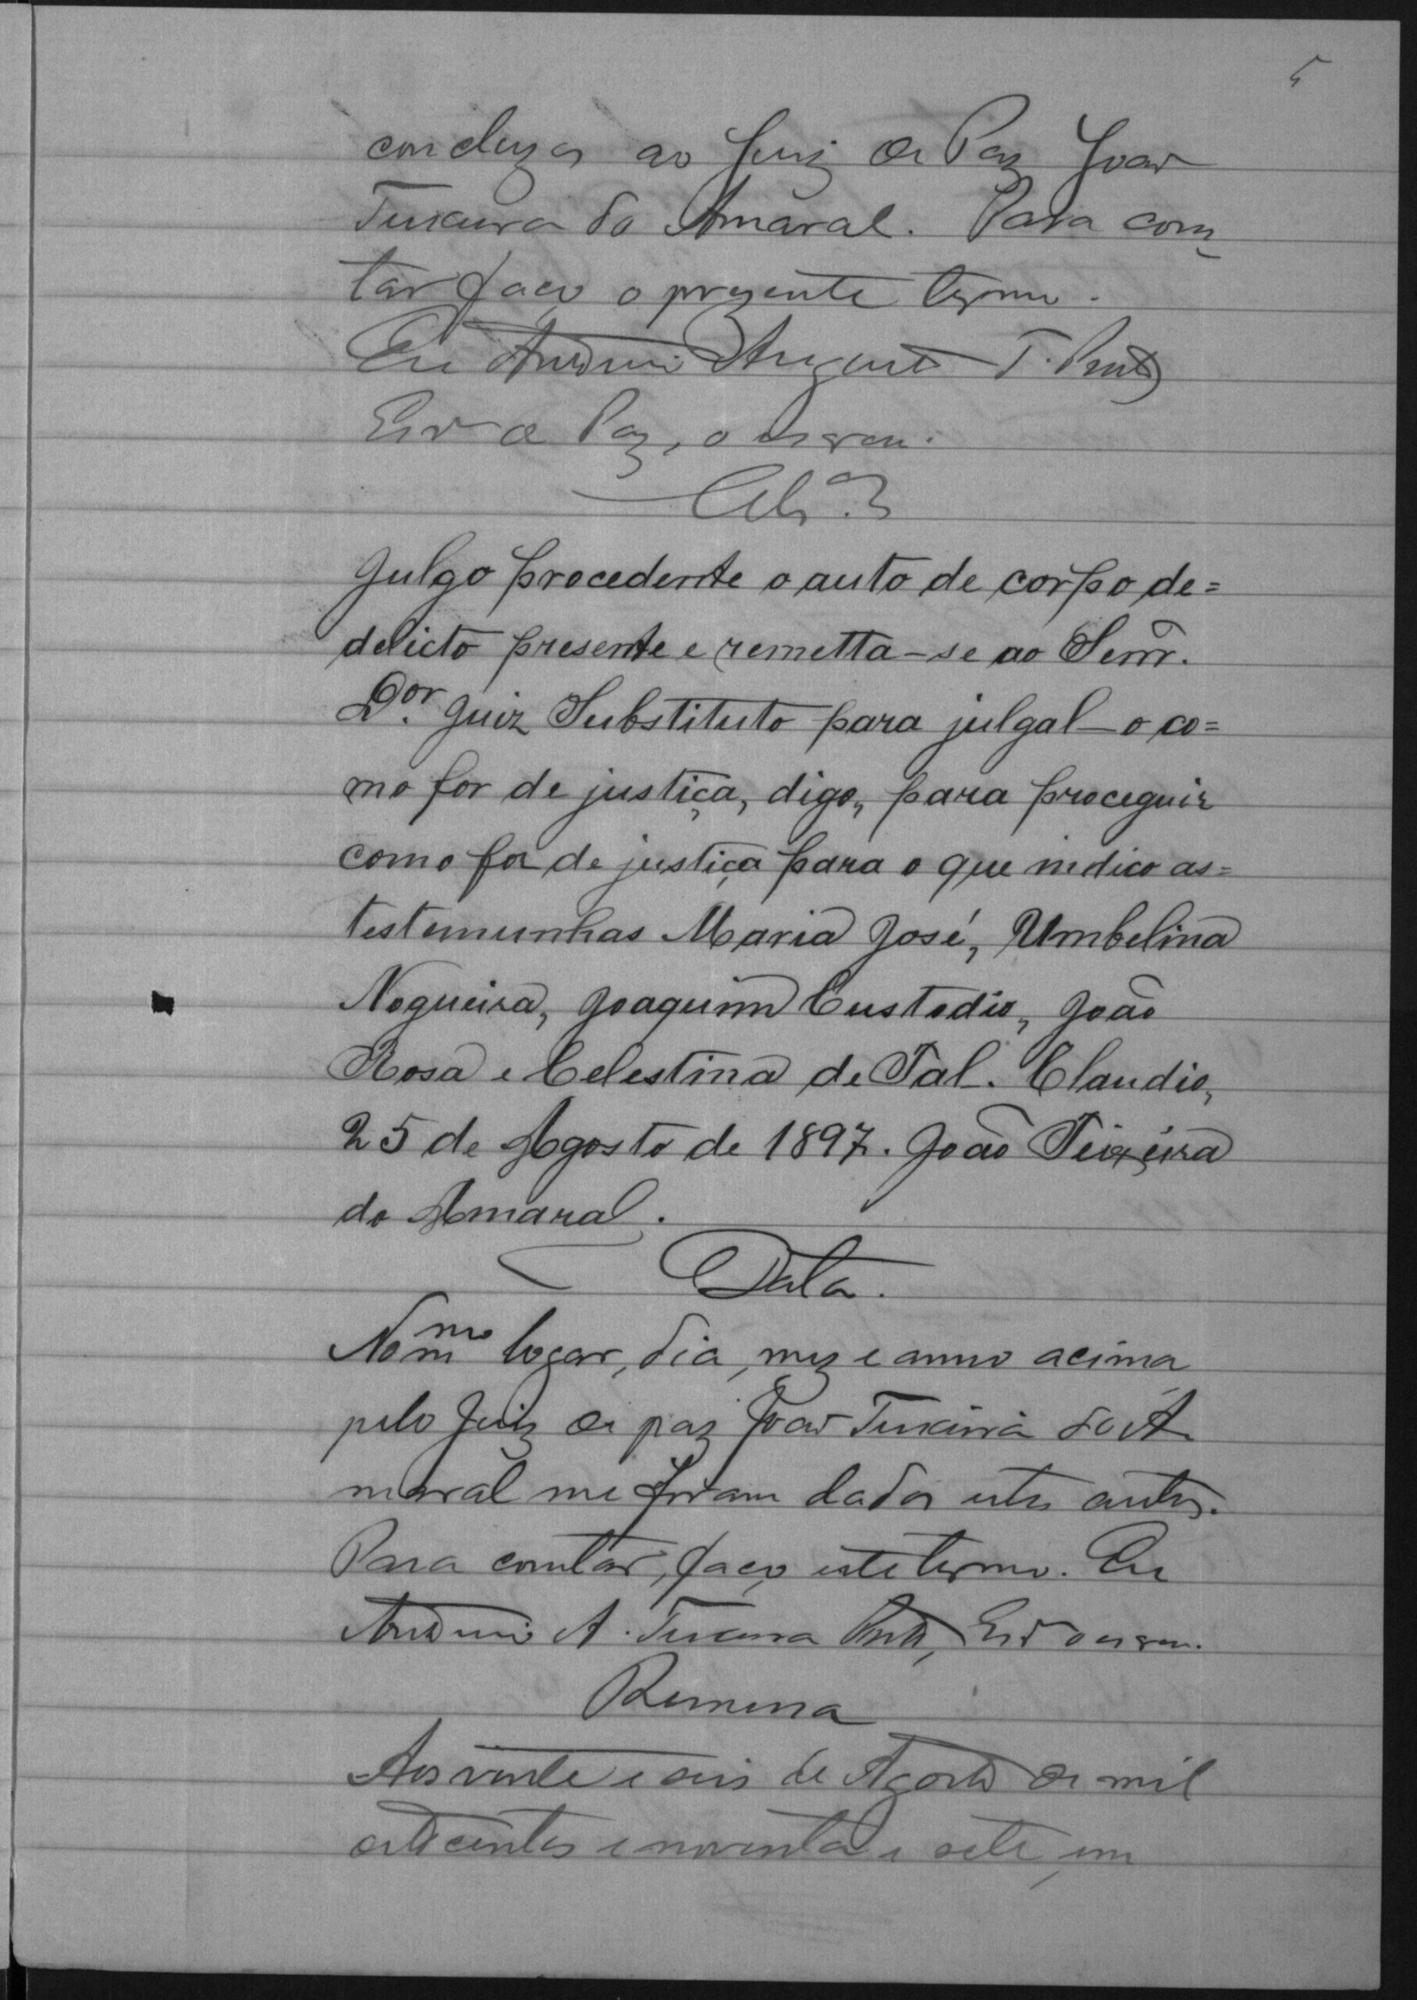 5
concluzos ao Juiz de Paz João
Teixeira do Amaral. Para cons
tar faço o prezente termo.
Eu Antonio Augusto T. Pinto
Esvˢ de Paz, o escrevi.
Julgo procedente o auto de corpo de=
delicto presente e remetta-se ao Senr.
Dor. Juiz Substituto para julgal-o co=
mo for de justiça, digo, para proceguir
como for de justiça para o que indico as=
testemunhas Maria José, Umbelina
Nogueira, Joaquim Custodio, João
Rosa e Celestina de Tal. Claudio,
25 de Agosto de 1897. João Teixeira
do Amaral.
Data.
No mmo logar, dia, mez e anno acima
pelo Juiz de paz João Teixeira do A
maral me foram dados estes autos.
Para constar, faço este termo. Eu
Antonio A. Teixeira Pinto, o escrevi.
Remessa
Aos vinte e seis de Agosto de mil
oitocentos e noventa e sete, em